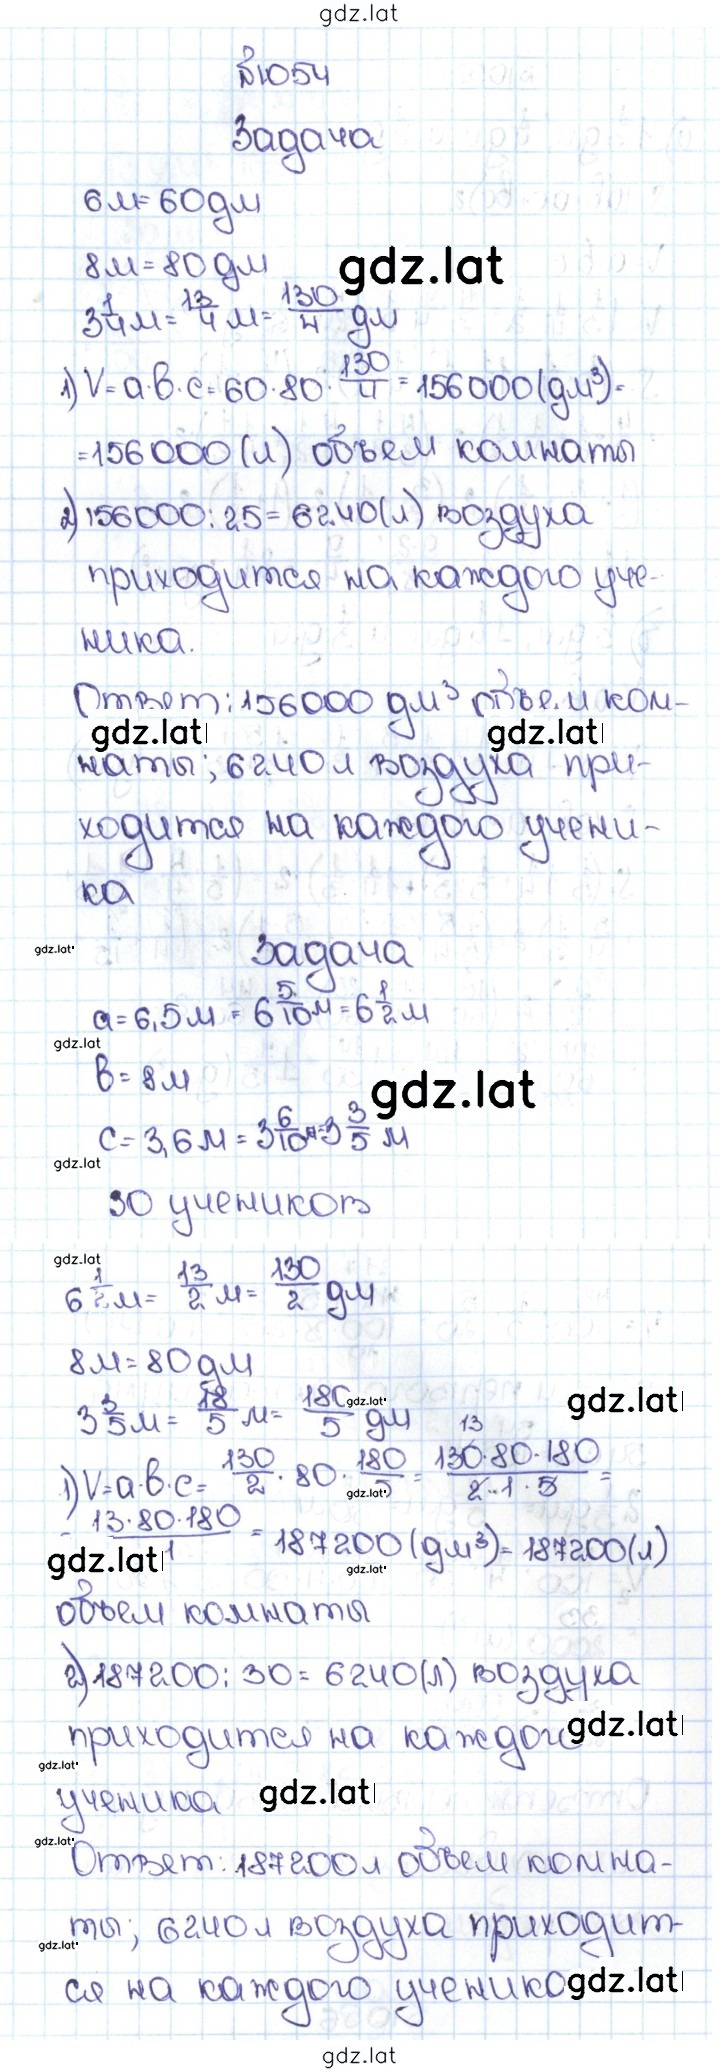 gdz.lat
№1054
Задача
6м=60дм
8м=80дм
gdz.lat
3 1/4 м = 13/4 м = 130/4 дм
1) V=a·b·c=60·80·130/4=156000(дм³)=
=156000(л) объем комнаты
2) 156000:25=6240(л) воздуха
приходится на каждого уче-
ника.
Ответ: 156000 дм³ объем ком-
gdz.lat gdz.lat
наты; 6240л воздуха при-
ходится на каждого учени-
ка
gdz.lat Задача
a=6,5м = 6 5/10 м = 6 1/2 м
gdz.lat
b=8м
gdz.lat
c=3,6м = 3 6/10 м=3 3/5 м
gdz.lat
30 учеников
gdz.lat
6 1/2 м = 13/2 м = 130/2 дм
8м=80дм
gdz.lat
3 3/5 м = 18/5 м = 180/5 дм
gdz.lat
13
1) V=a·b·c= 130/2 · 80 · 180/5 = 130·80·180/2·1·5 =
gdz.lat
= 13·80·180/1 = 187200(дм³)=187200(л)
gdz.lat gdz.lat
объем комнаты
2) 187200:30=6240(л) воздуха
приходится на каждого
gdz.lat
gdz.lat
ученика gdz.lat
gdz.lat
Ответ: 187200л объем комна-
ты; 6240л воздуха приходит-
gdz.lat
ся на каждого ученико gdz.lat
gdz.lat